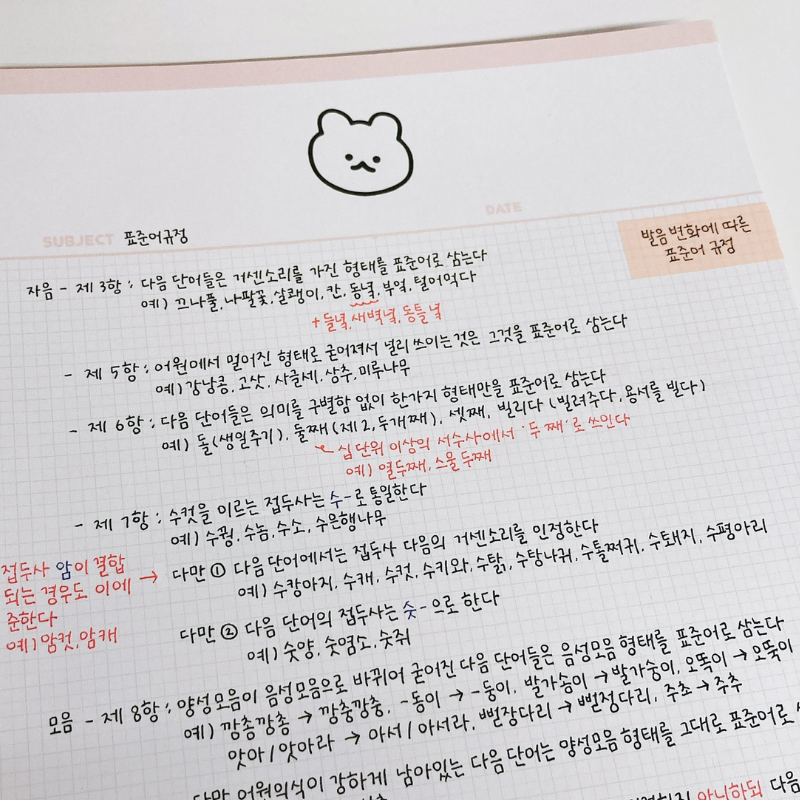 DATE
SUBJECT 표준어규정
발음 변화에 따른
표준어 규정
자음 - 제 3항 : 다음 단어들은 거센소리를 가진 형태를 표준어로 삼는다
예) 끄나풀, 나팔꽃, 살쾡이, 칸, 동녘, 부엌, 털어먹다
+ 들녘, 새벽녘, 동틀 녘
- 제 5항 : 어원에서 멀어진 형태로 굳어져서 널리 쓰이는 것은 그것을 표준어로 삼는다
예) 강낭콩, 고삿, 사글세, 상추, 미루나무
- 제 6항 : 다음 단어들은 의미를 구별함 없이 한가지 형태만을 표준어로 삼는다
예) 돌(생일주기), 둘째(제2, 두개째), 셋째, 빌리다 (빌려주다, 용서를 빌다)
십 단위 이상의 서수사에서 '두 째'로 쓰인다
예) 열두째, 스물두째
- 제 7항 : 수컷을 이르는 접두사는 수-로 통일한다
예) 수꿩, 수놈, 수소, 수은행나무
접두사 암이 결합
되는 경우도 이에 →
준한다
예) 암컷, 암캐
다만 ① 다음 단어에서는 접두사 다음의 거센소리를 인정한다
예) 수캉아지, 수캐, 수컷, 수키와, 수탉, 수탕나귀, 수톨쩌귀, 수퇘지, 수평아리
다만 ② 다음 단어의 접두사는 숫-으로 한다
예) 숫양, 숫염소, 숫쥐
모음 - 제 8항 : 양성모음이 음성모음으로 바뀌어 굳어진 다음 단어들은 음성모음 형태를 표준어로 삼는다
예) 깡총깡총 → 깡충깡충, -동이 → -둥이, 발가송이 → 발가숭이, 오똑이 → 오뚝이
앗아/앗아라 → 아서/아서라, 뻗장다리 → 뻗정다리, 주초 → 주추
다만 어원의식이 강하게 남아있는 다음 단어는 양성모음 형태를 그대로 표준어로
아니하되 다음